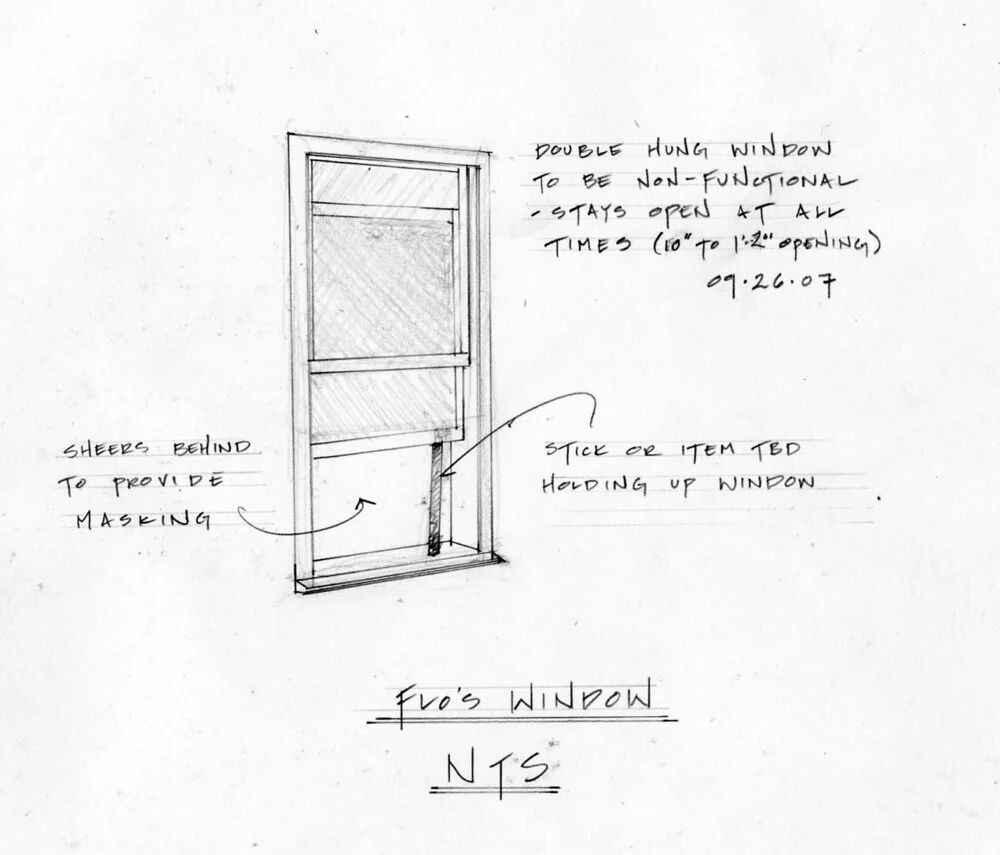 DOUBLE HUNG WINDOW
TO BE NON-FUNCTIONAL
- STAYS OPEN AT ALL
TIMES (10" TO 1'-2" OPENING)
09.26.07
SHEERS BEHIND
TO PROVIDE
MASKING
STICK OR ITEM TBD
HOLDING UP WINDOW
FLO'S WINDOW
NTS